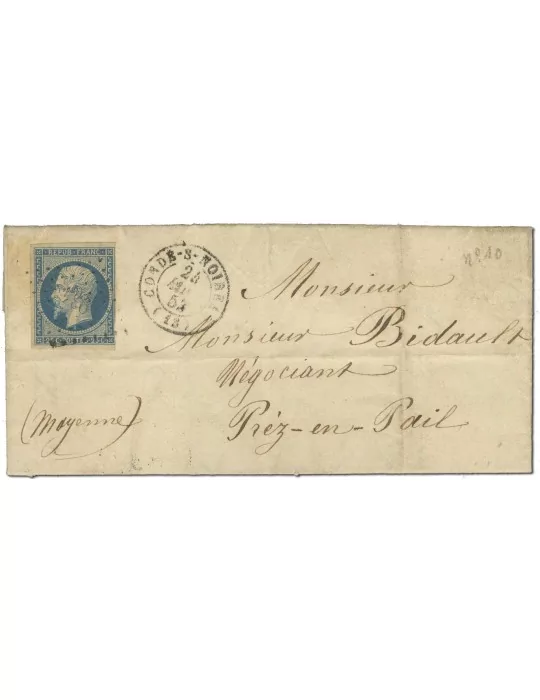 REPUB. FRANC.
CONDÉ-S-NOIREAU
(13)
Nº 10
Monsieur
Monsieur Bidault
Négociant
Préz-en-Pail
(Mayenne)